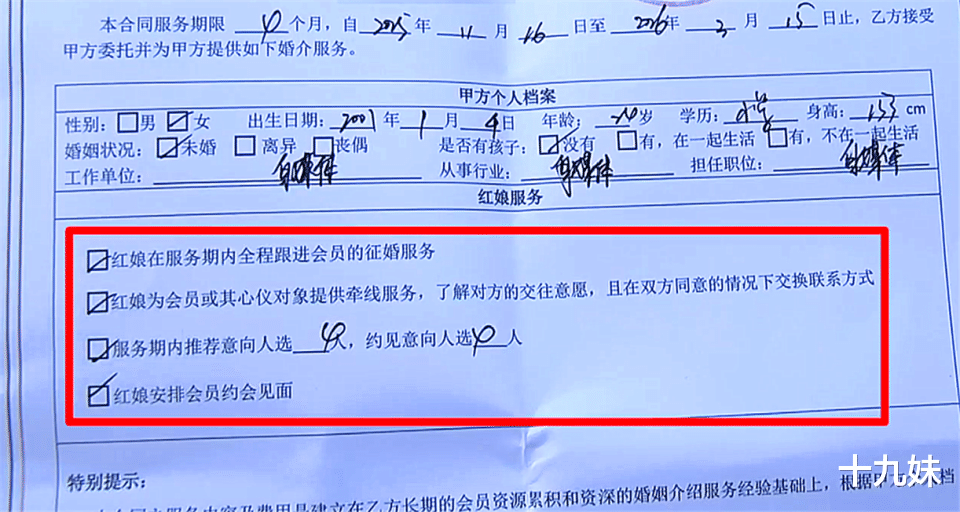 本合同服务期限 4 个月，自 2025 年 11 月 16 日至 2026年 3 月 15 日止，乙方接受
甲方委托并为甲方提供如下婚介服务。
甲方个人档案
性别：□男 ☑女 出生日期：2001 年 1 月 4日 年龄： 岁 学历：小学 身高：153 cm
婚姻状况：☑未婚 □离异 □丧偶 是否有孩子：☑没有 □有，在一起生活 □有，不在一起生活
工作单位：自媒体 从事行业：自媒体 担任职位：自媒体
红娘服务
☑红娘在服务期内全程跟进会员的征婚服务
☑红娘为会员或其心仪对象提供牵线服务，了解对方的交往意愿，且在双方同意的情况下交换联系方式
☑服务期内推荐意向人选 4 人，约见意向人选 4 人
☑红娘安排会员约会见面
特别提示：
本合同主服务内容及费用是建立在乙方长期的会员资源累积和资深的婚姻介绍服务经验基础上，根据甲方 档
十九妹